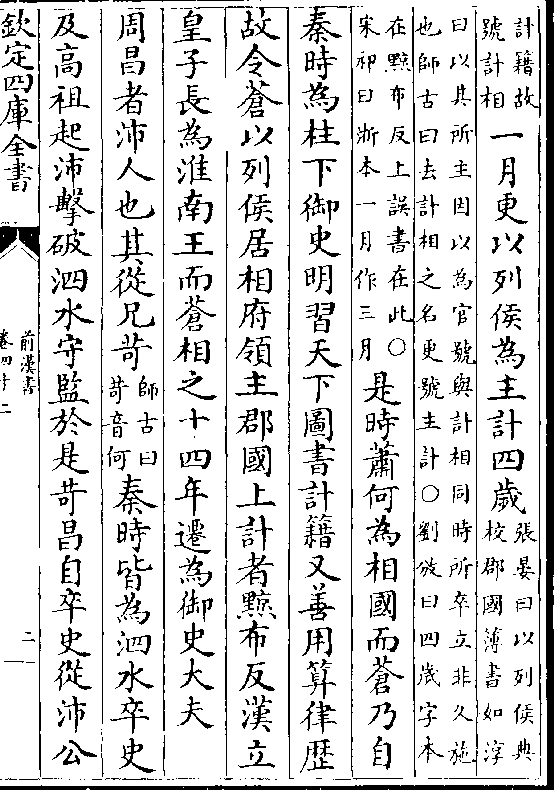 計籍故
號計相
一月更以列侯為主計四歲
張晏曰以列侯典
校郡國簿書如淳
曰以其所主因以為官號與計相同時所卒立非久施
也師古曰去計相之名更號主計○劉攽曰四歲字本
在黥布反上誤書在此○
宋祁曰浙本一月作三月
是時蕭何為相國而蒼乃自
秦時為柱下御史明習天下圖書計籍又善用算律歴
故令蒼以列侯居相府領主郡國上計者黥布反漢立
皇子長為淮南王而蒼相之十四年遷為御史大夫
周昌者沛人也其從兄苛
師古曰
苛音何
秦時皆為泗水卒史
及高祖起沛擊破泗水守監於是苛昌自卒史從沛公
欽定四庫全書
前漢書
卷四十二
二